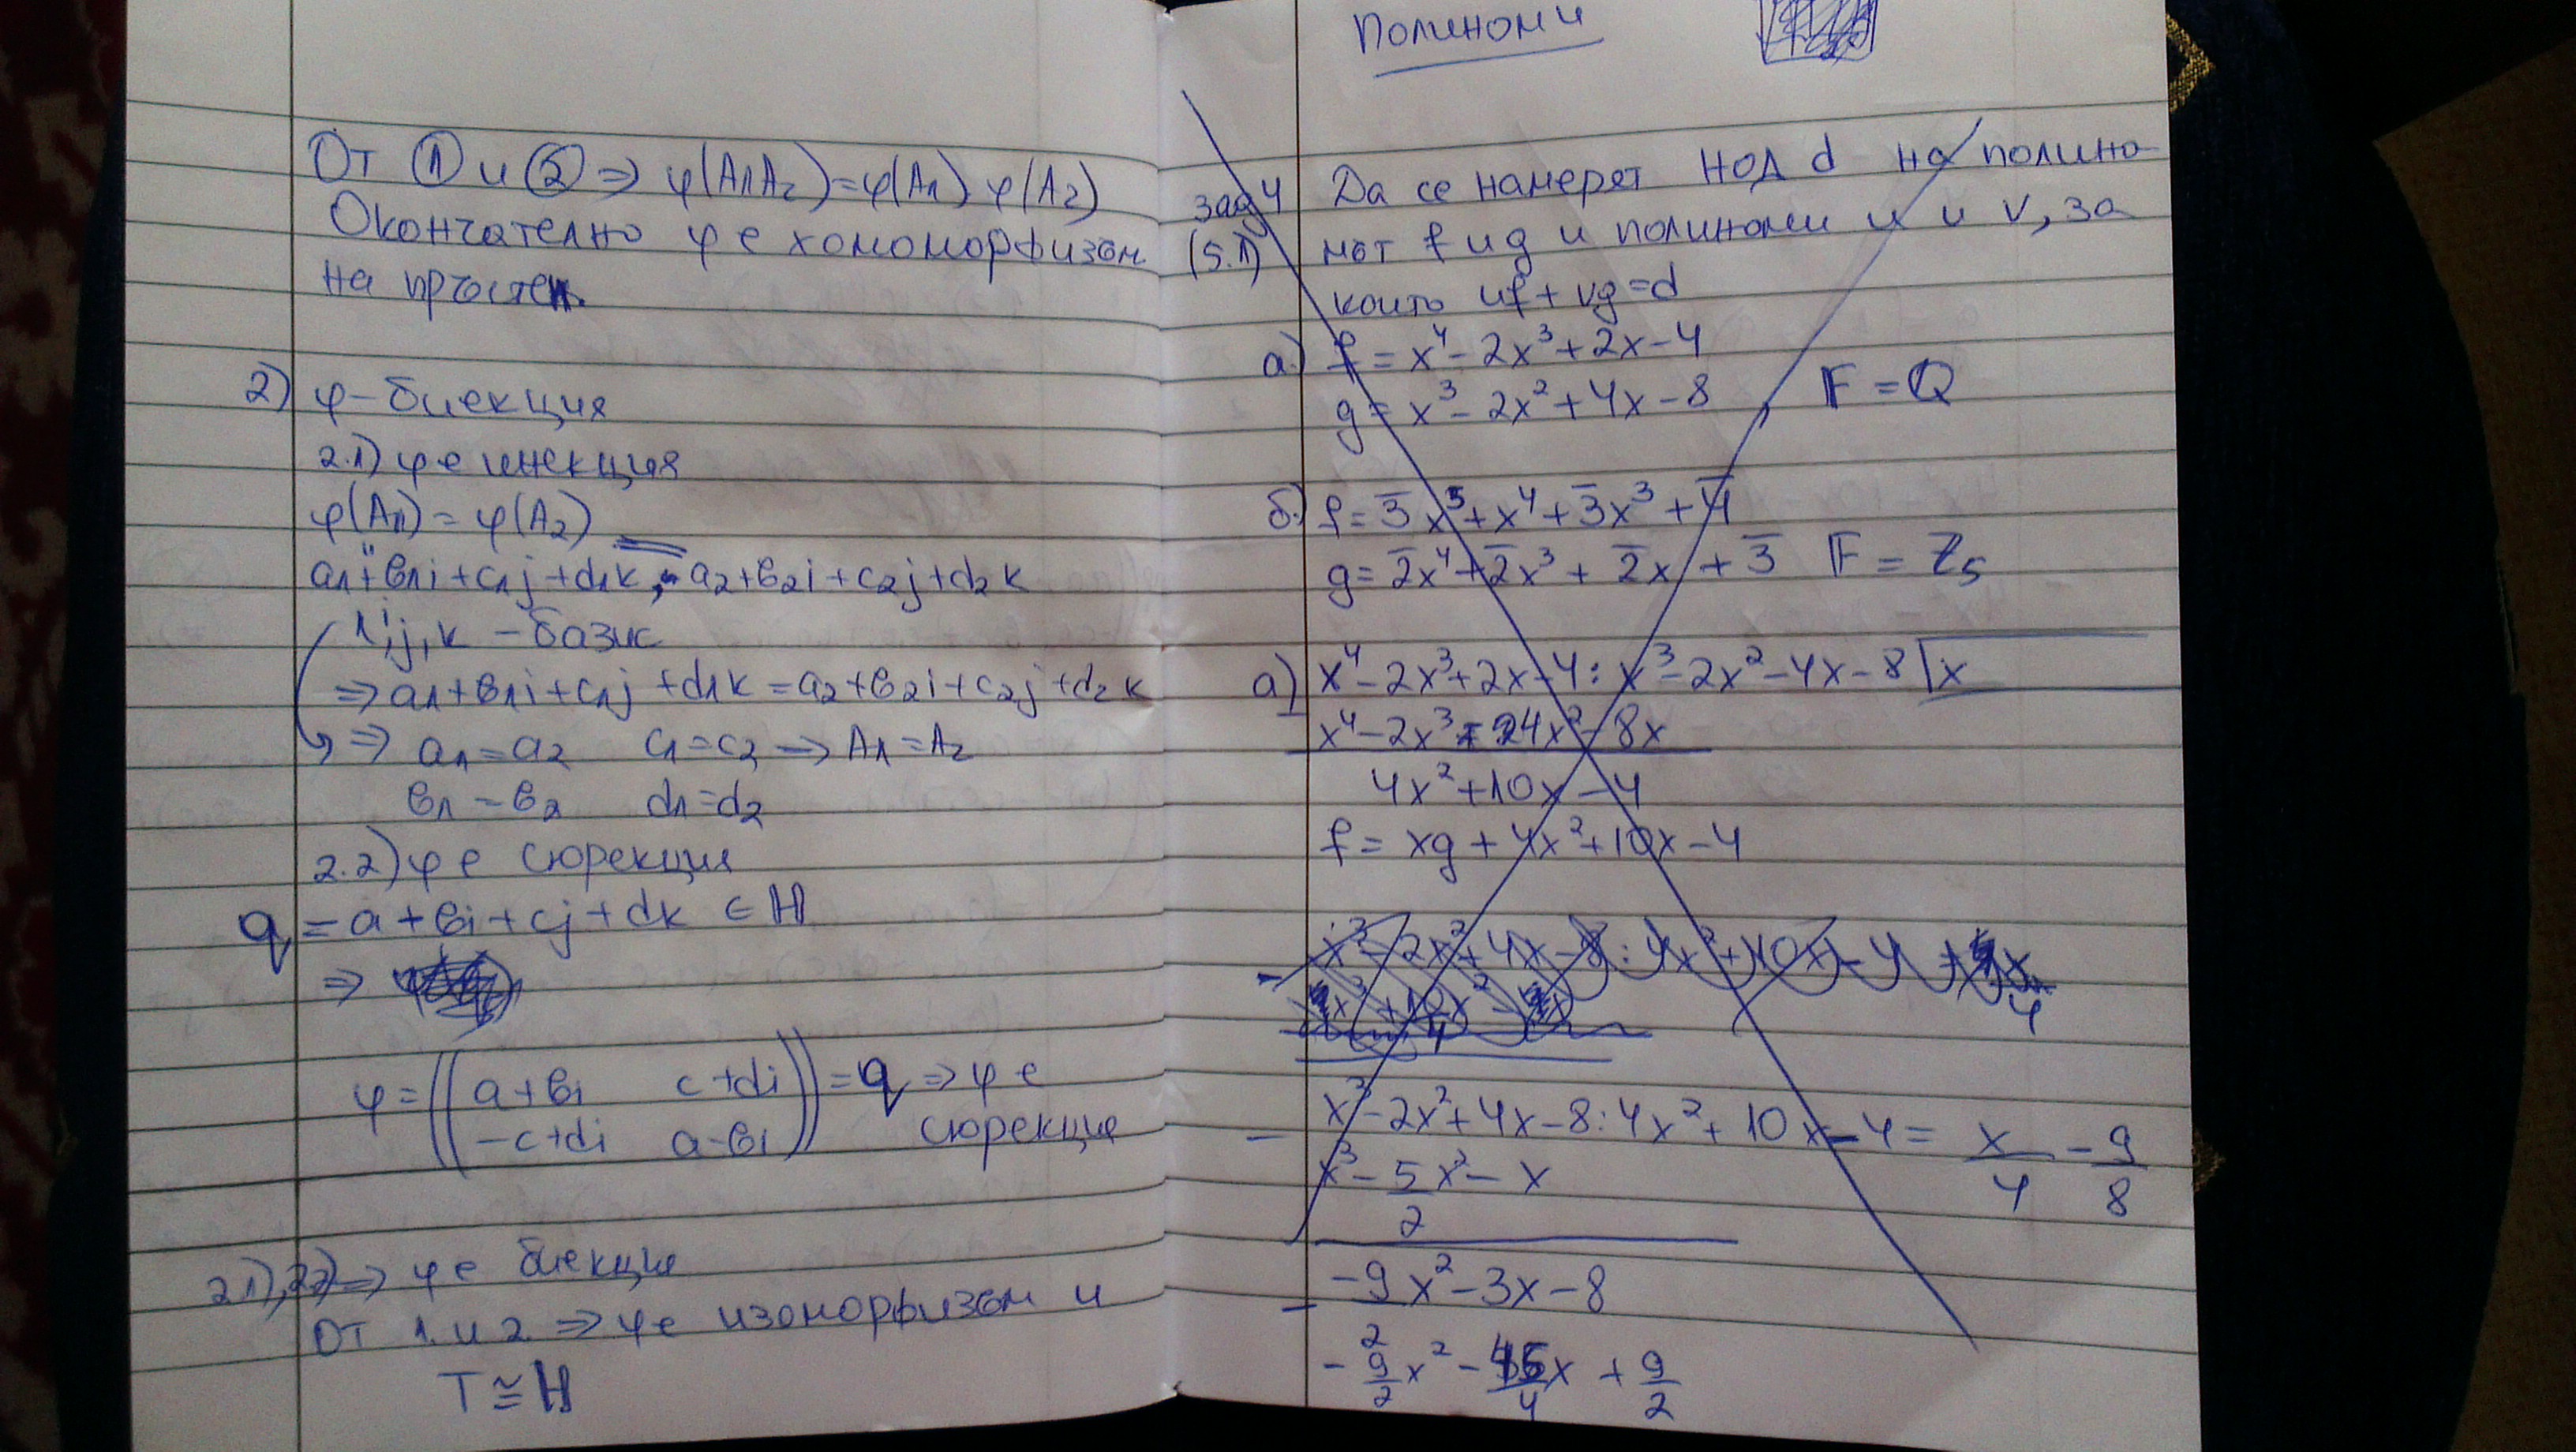 От ① и ② ⇒ φ(A₁A₂)=φ(A₁) φ(A₂)
Окончателно φ е хомоморфизъм
на пръстени.
2) φ-биекция
2.1) φ е инекция
φ(A₁) = φ(A₂)
a₁+b₁i+c₁j+d₁k = a₂+b₂i+c₂j+d₂k
1,i,j,k – базис
⇒ a₁+b₁i+c₁j+d₁k=a₂+b₂i+c₂j+d₂k
⇒ a₁=a₂ c₁=c₂ → A₁=A₂
b₁=b₂ d₁=d₂
2.2) φ е сюрекция
q = a+bi+cj+dk ∈ ℍ
⇒
φ=((a+bi c+di
-c+di a-bi))=q ⇒ φ е
сюрекция
2.1),2.2) ⇒ φ е биекция
От 1. и 2. ⇒ φ е изоморфизъм и
T≅ℍ
Полиноми
зад 4 Да се намерят НОД d на полино-
(5.1) мът f и g и полиноми u и v, за
които uf+vg=d
а) f = x⁴-2x³+2x-4
g = x³-2x²+4x-8 𝔽=ℚ
б) f = 3̅x⁵+x⁴+3̅x³+4̅
g = 2̅x⁴+2̅x³+2̅x+3̅ 𝔽=ℤ₅
а) x⁴-2x³+2x-4 : x³-2x²-4x-8 x
x⁴-2x³ 4x²-8x
4x²+10x-4
f = xg+4x²+10x-4
x³-2x²+4x-8 : 4x²+10x-4
x³-2x²+4x-8 : 4x²+10x-4 = x/4 - 9/8
x³-5/2x²-x
-9/2x²-3x-8
-9/2x²-45/4x+9/2